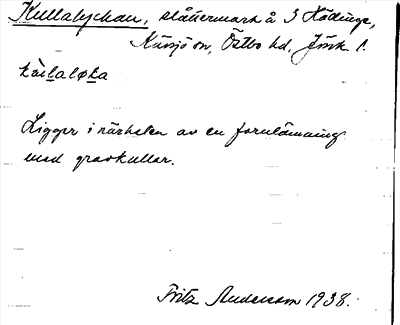 Kullalyckan, slåttermark å 3 Hödinge,
Kävsjö sn, Östbo hd, Jönk l.
Ligger i närheten av en fornlämning
med gravkullar.
Fritz Andersson 1938.